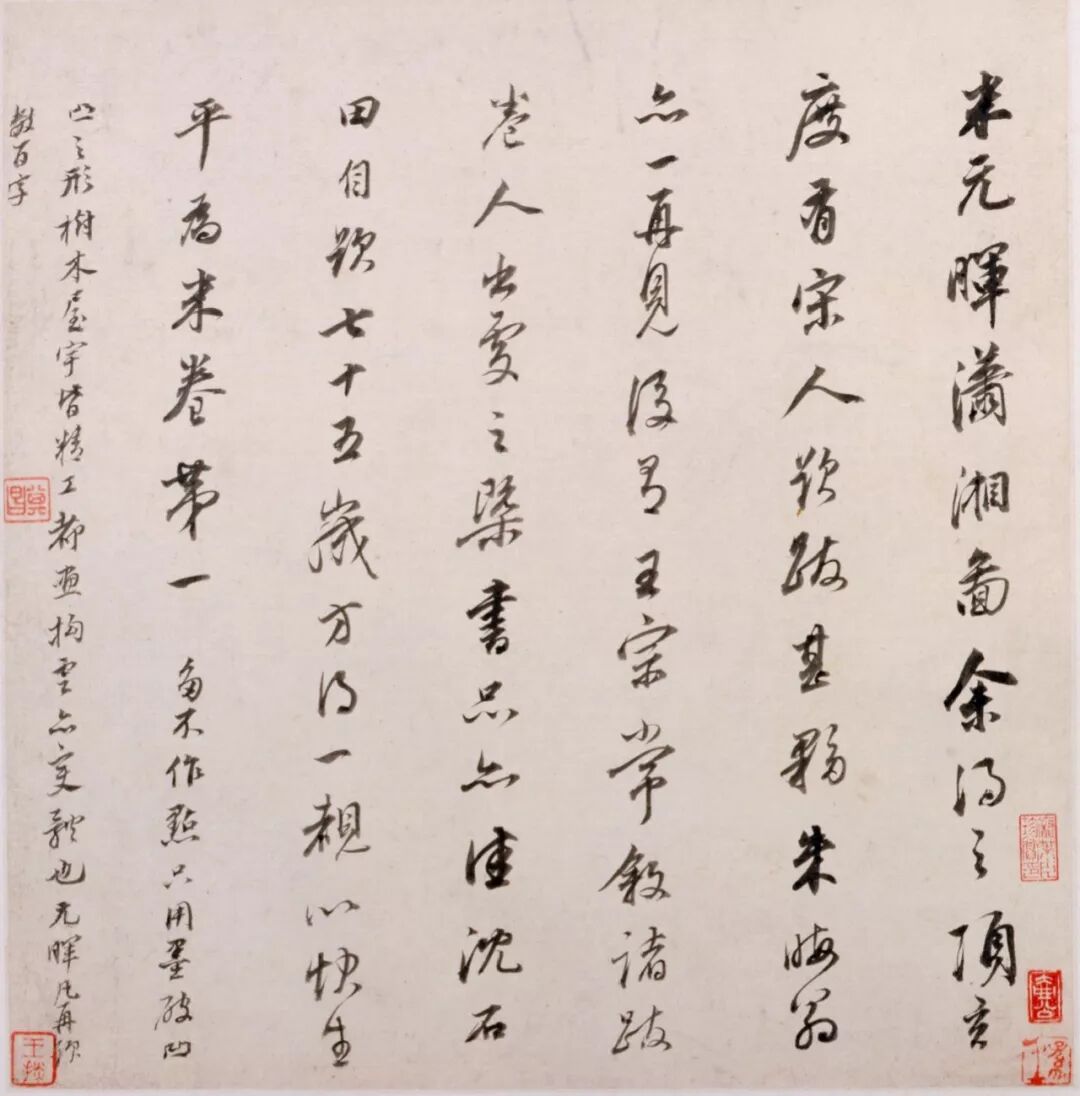 米元暉瀟湘圖余得之項玄
度有宋人題跋甚夥朱晦翁
亦一再見後有王宗常敘諸跋
卷人出處之槩書品亦佳沈石
田自題七十五歲方得一覩以快生
平為米卷第一 不作點只用墨破凹
凸之形樹木屋宇皆精工都畫拘雲亦变體也元暉凡再題
數百字